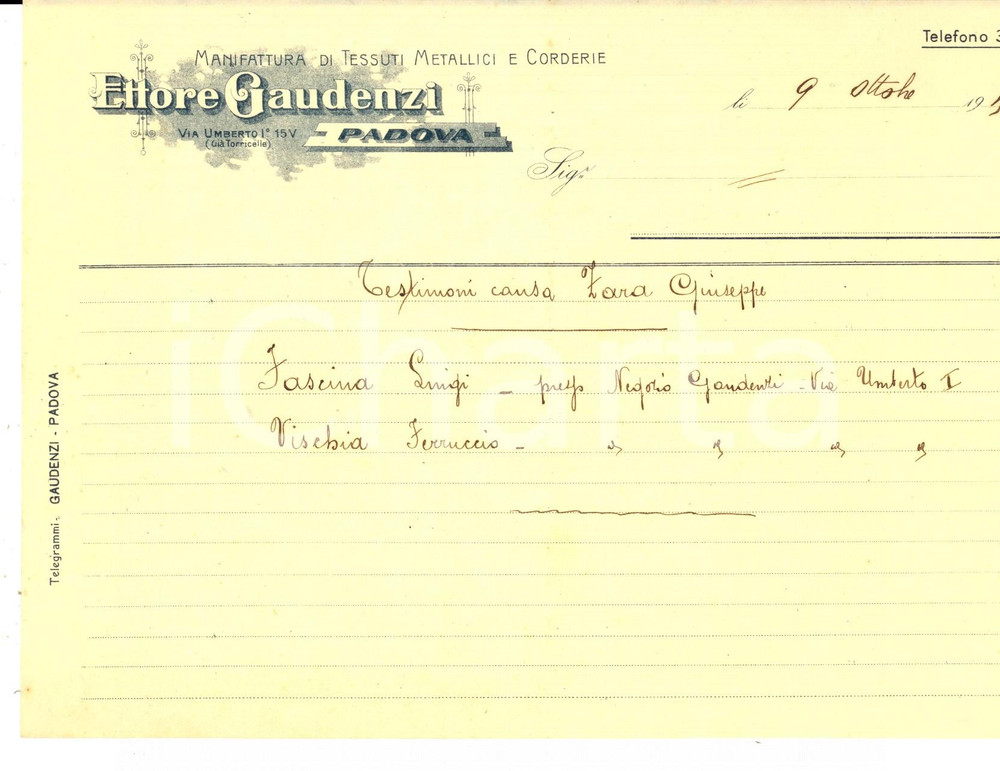 Telefono 3
MANIFATTURA DI TESSUTI METALLICI E CORDERIE
Ettore Gaudenzi
VIA UMBERTO I° 15V
(Già Torricelle)
PADOVA
li 9 Ottobre 19
Sigr.
Testimoni causa Zara Giuseppe
Fascina Luigi - presso Negozio Gaudenzi - Via Umberto I
Vischia Ferruccio - " " " "
Telegrammi: GAUDENZI - PADOVA
iCharta